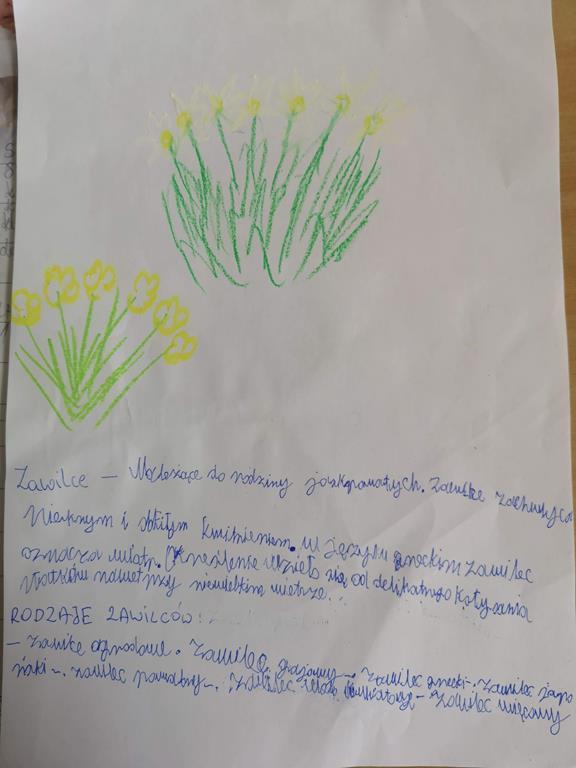 Zawilce — Należące do rodziny jaskrowatych. Zawilce zachwyca
Pięknym i obfitym kwitnieniem. w języku greckim zawilec
oznacza wiatr. Określenie wzięło się od delikatnego kołysania
kwiatków nawet przy niewielkim wietrze.
RODZAJE ZAWILCÓW:
— zawilce ogrodowe. Zawilec gajowy —. Zawilec grecki —. Zawilec japo
ński —. zawilec powabny —. Zawilec wielokwiatowy — Zawilec wieńcowy